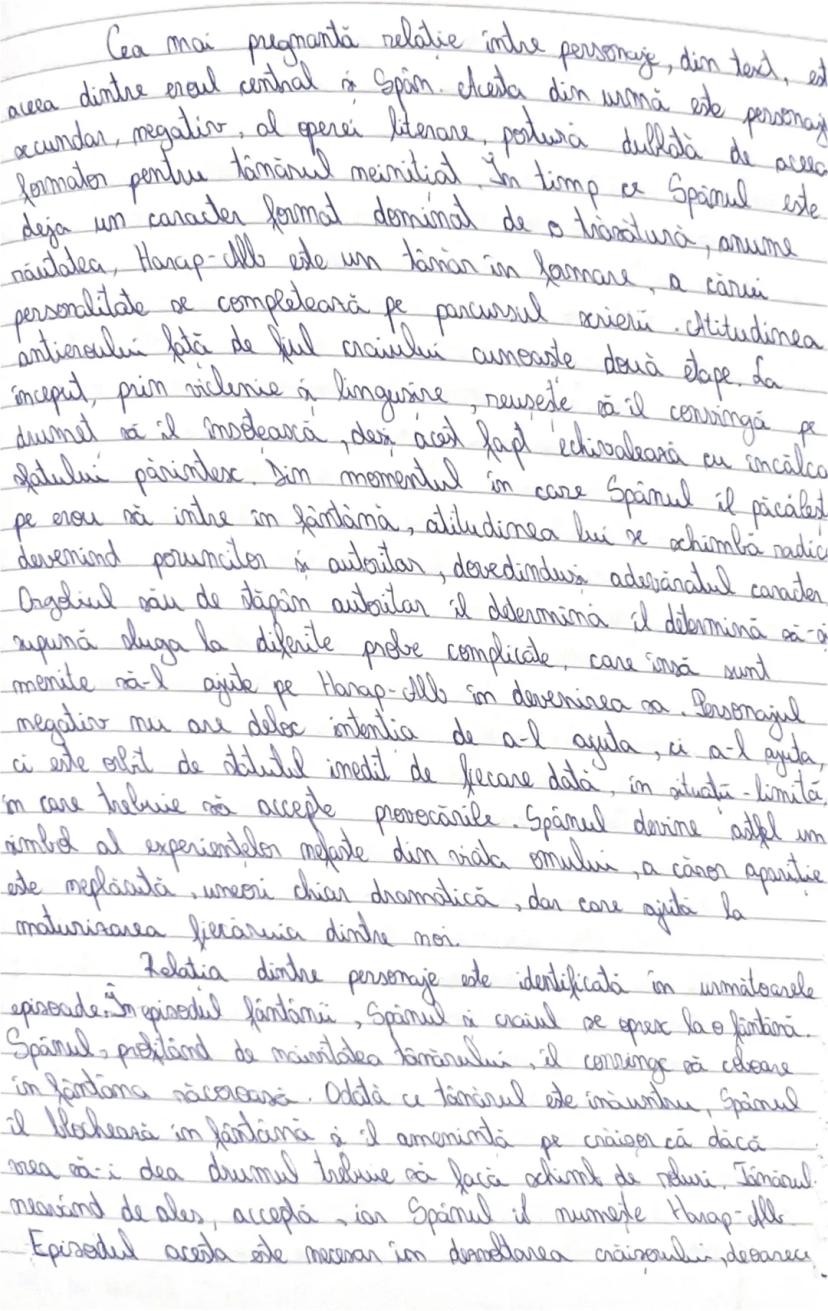 Cea mai pregnantă relație între personaje, din text, est
aceea dintre eroul central și Spân. Acesta din urmă este personaj
secundar, negativ, al operei literare, postură dublată de aceea
formator pentru tânărul neinițiat. În timp ce Spânul este
deja un caracter format dominat de o trăsătură, anume
răutatea, Harap-Alb este un tânăr în formare, a cărui
personalitate se completează pe parcursul scrierii. Atitudinea
antieroului față de fiul craiului cunoaște două etape. La
început, prin viclenie și lingușire, reușește să îl convingă pe
drumeț să îl însoțească, deși acest fapt echivalează cu încălca
sfatului părintesc. Din momentul în care Spânul îl păcăleșt
pe erou să intre în fântână, atitudinea lui se schimbă radica
devenind poruncitor și autoritar, dovedinduși adevăratul caracter.
Orgoliul său de stăpân autoritar îl determină îl determină să-și
supună sluga la diferite probe complicate, care însă sunt
menite să-l ajute pe Harap-Alb în devenirea sa. Personajul
negativ nu are deloc intenția de a-l ajuta, ci a-l ajuta,
ci este orbit de statutul inedit de fiecare dată, în situații-limită,
în care trebuie să accepte provocările. Spânul devine astfel un
simbol al experiențelor nefaste din viața omului, a căror apariție
este neplăcută, uneori chiar dramatică, dar care ajută la
maturizarea fiecăruia dintre noi.
Relația dintre personaje este identificată în următoarele
episoade. În episodul fântânii, Spânul și craiul se opresc la o fântână.
Spânul, profitând de naivitatea tânărului, îl convinge să coboare
în fântâna răcoroasă. Odată ce tânărul este înăuntru, Spânul
îl blochează în fântână și îl amenință pe crăișor că dacă
vrea să-i dea drumul trebuie să facă schimb de roluri. Tânărul
neavând de ales, acceptă, iar Spânul îl numește Harap-Alb.
Episodul acesta este necesar în dezvoltarea crăișorului, deoarece